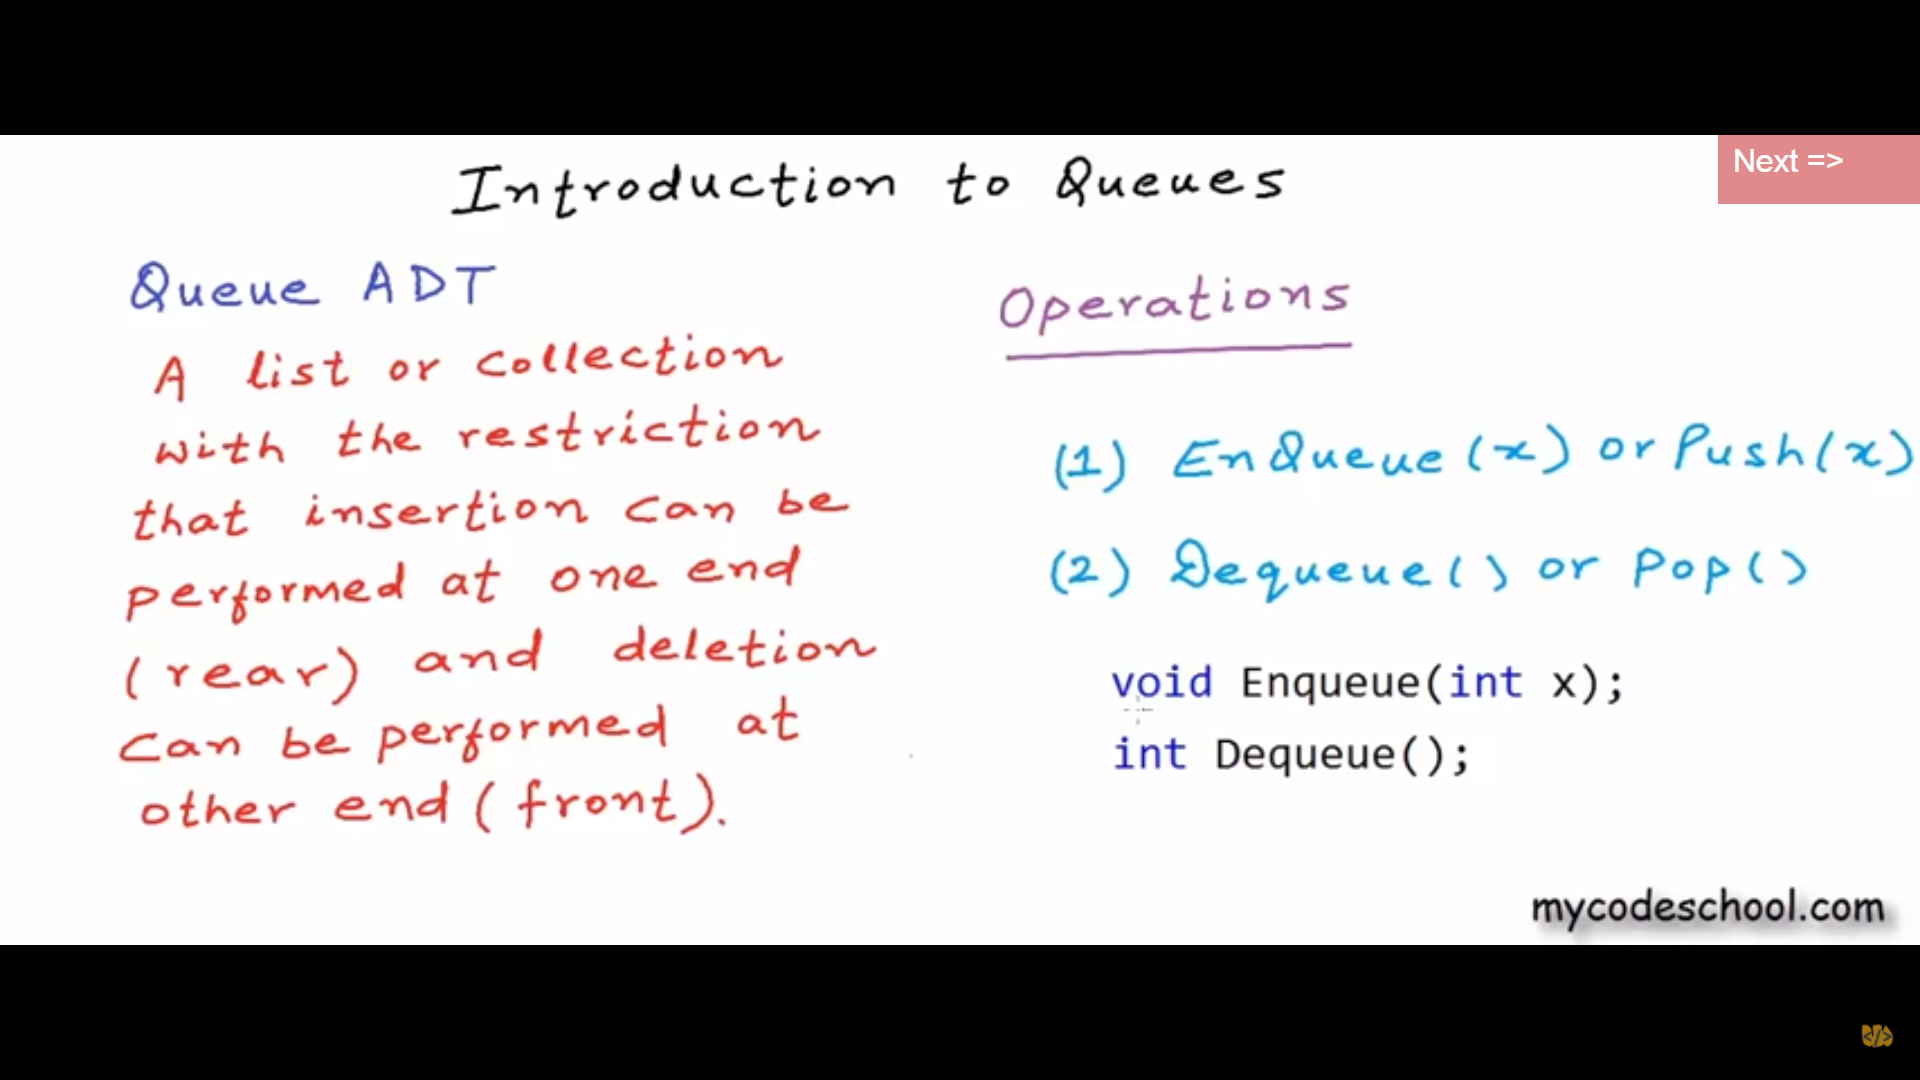 Next =>
Introduction to Queues
Queue ADT
A list or collection
with the restriction
that insertion can be
performed at one end
(rear) and deletion
can be performed at
other end (front).
Operations
(1) EnQueue(x) or Push(x)
(2) Dequeue() or Pop()
void Enqueue(int x);
int Dequeue();
mycodeschool.com